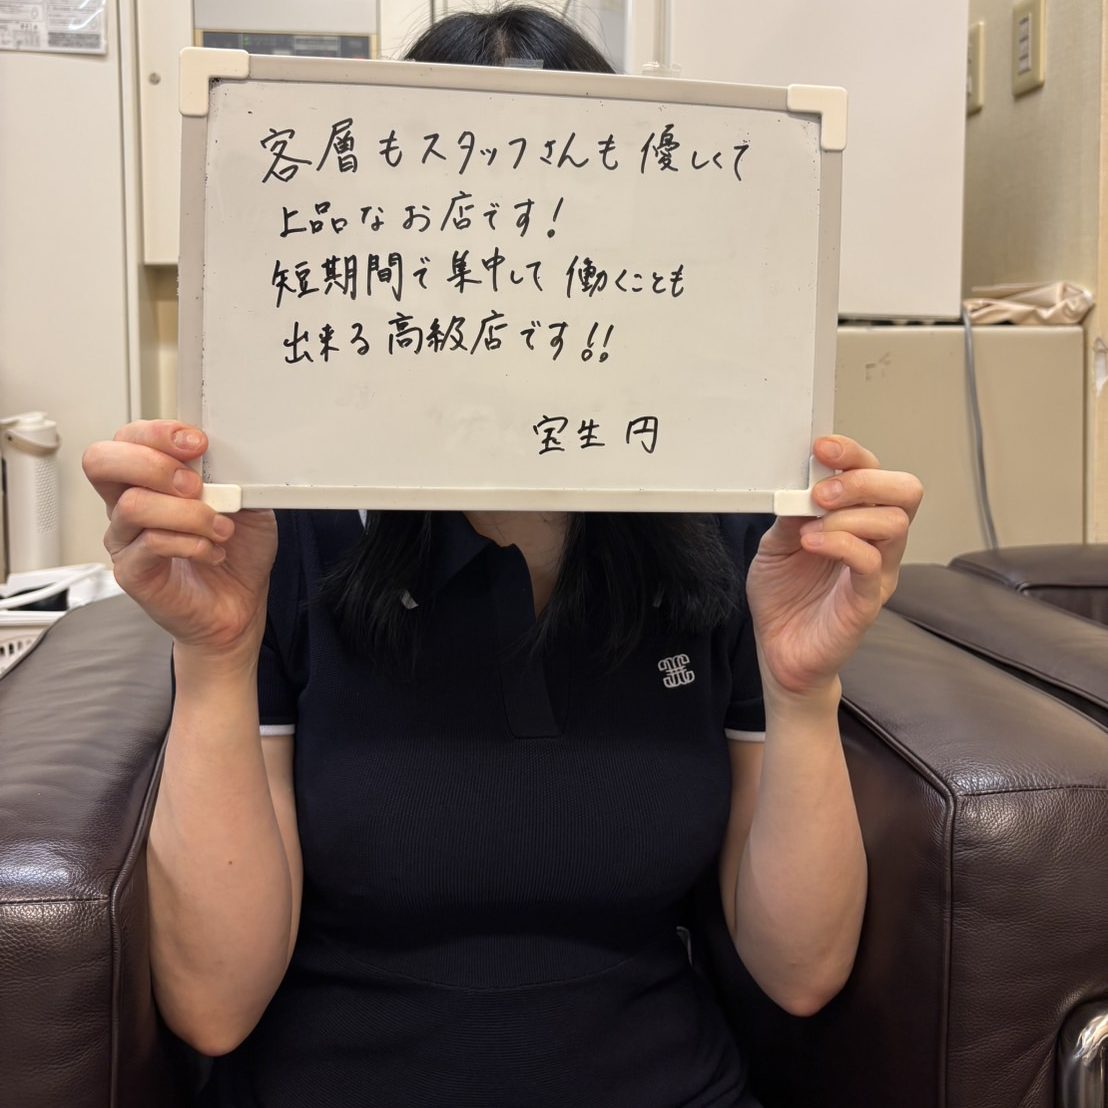 客層もスタッフさんも優しくて
上品なお店です！
短期間で集中して働くことも
出来る高級店です！！
宝生 円